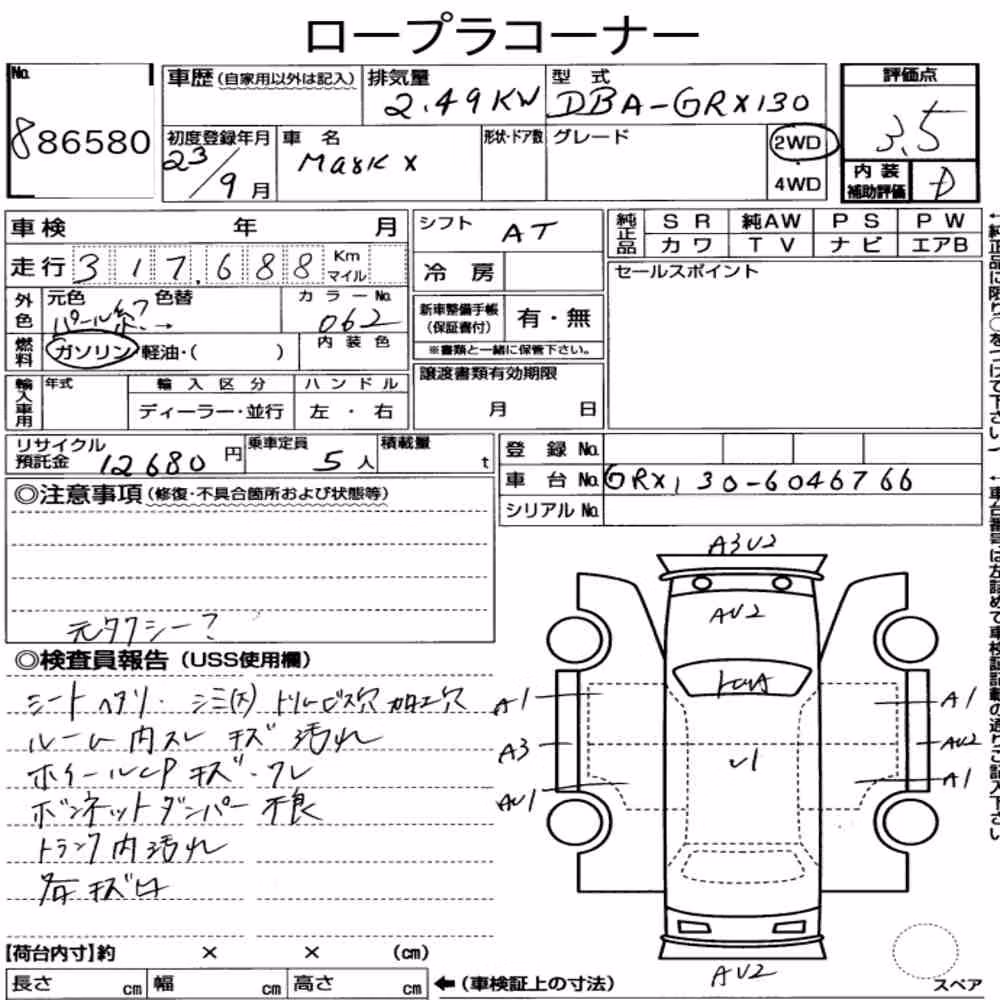 ロープラコーナー
No.
886580
車歴 (自家用以外は記入)
排気量
2.49KW
型 式
DBA-GRX130
評価点
3.5
初度登録年月
23/9月
車 名
Mark X
形状・ドア数
グレード
2WD
4WD
内 装
補助評価
D
車検 年 月
走行 317,688 Km マイル
シフト
AT
冷 房
純正品
S R 純AW P S P W
カワ T V ナビ エアB
セールスポイント
外色
元色 色替
パール
カラーNo.
062
燃料
ガソリン・軽油・( )
内 装 色
新車整備手帳
(保証書付)
有・無
※書類と一緒に保管下さい。
輸入車用
年式
輸 入 区 分
ハ ン ド ル
ディーラー・並行
左 ・ 右
譲渡書類有効期限
月 日
リサイクル
預託金
12680円
乗車定員
5人
積載量
t
登 録 No.
車 台 No.
GRX130-6046766
シリアル No.
◎注意事項(修復・不具合箇所および状態等)
元タクシー?
◎検査員報告 (USS使用欄)
シートヘタリ・シミ(大) トリムビス穴 加工穴
ルーム内スレ キズ 汚れ
ホイールCP キズ・ワレ
ボンネットダンパー不良
トランク内汚れ
各キズ凹
A3U2
AU2
A1
A3
AU1
U1
A1
AU2
A1
AU2
スペア
【荷台内寸】約 × × (cm)
長さ cm 幅 cm 高さ cm
←(車検証上の寸法)
←純正品に限り○をつけて下さい)
←車台番号は左詰めて車検証記載の通りご記入下さい